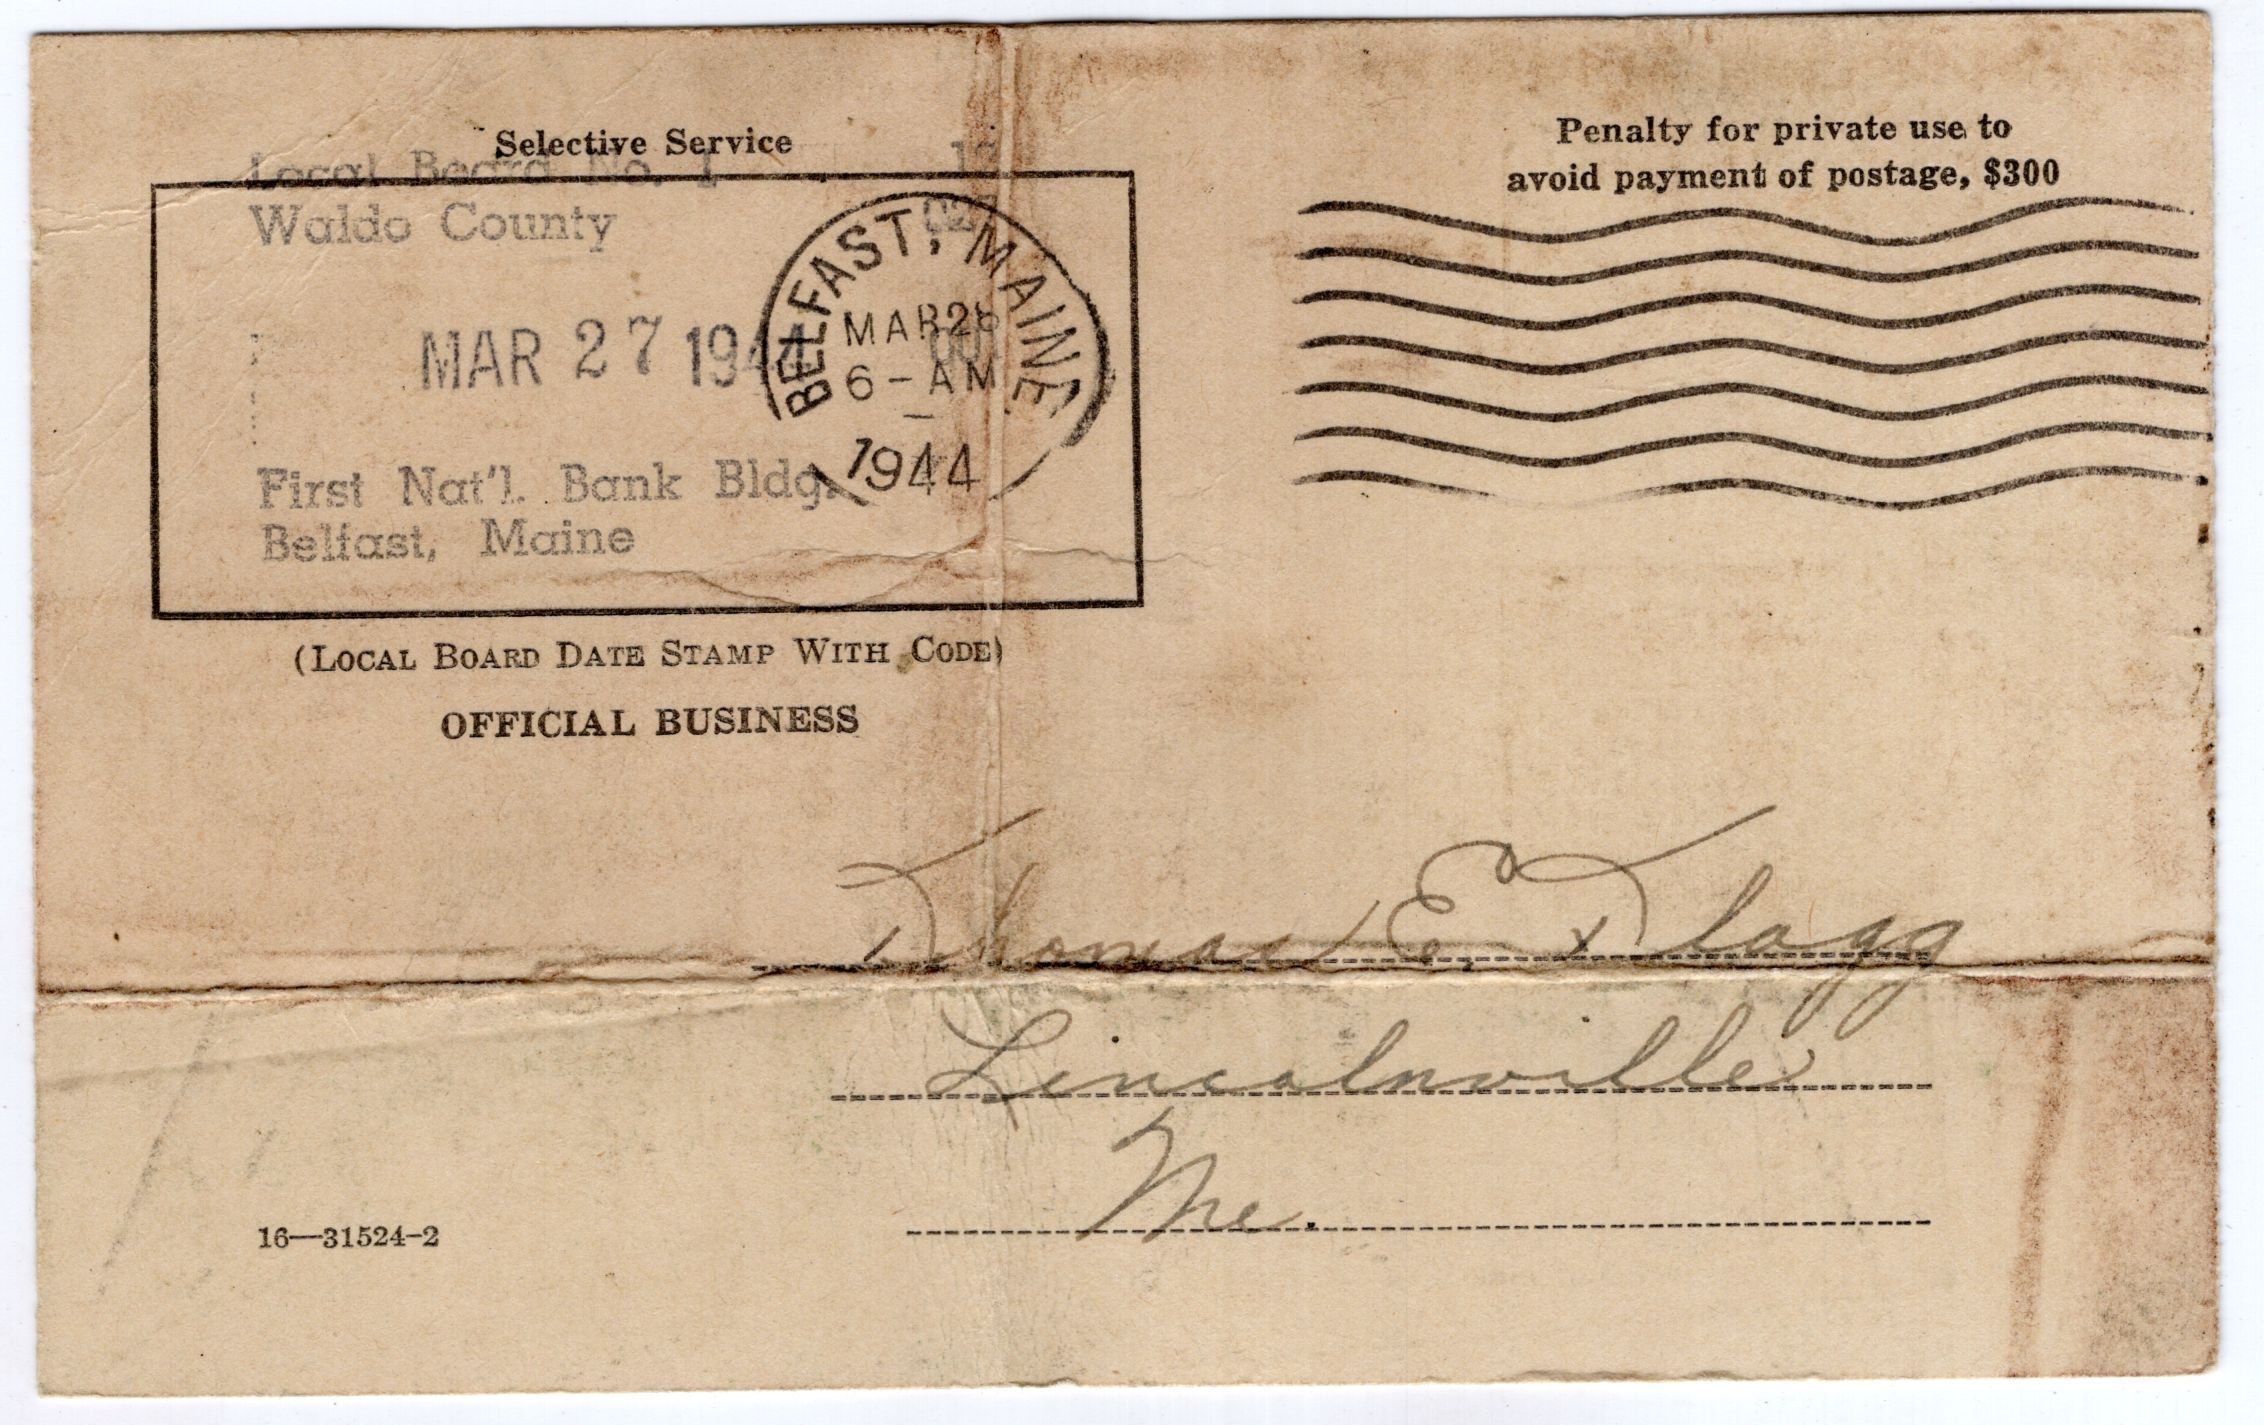 Selective Service
Local Board No. 1
Waldo County
027
MAR 27 1944
First Nat'l. Bank Bldg.
Belfast, Maine
BELFAST, MAINE
MAR 28
6-AM
1944
(LOCAL BOARD DATE STAMP WITH CODE)
OFFICIAL BUSINESS
Penalty for private use to
avoid payment of postage, $300
Thomas E. Flagg
Lincolnville
Me.
16—31524-2